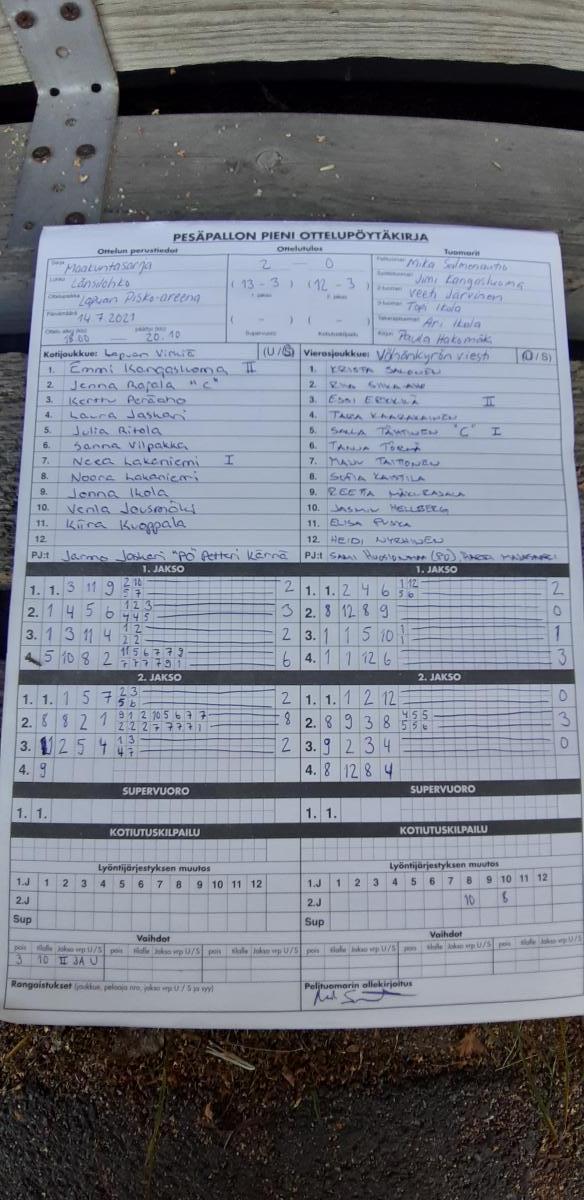 PESÄPALLON PIENI OTTELUPÖYTÄKIRJA
Ottelun perustiedot Ottelutulos Tuomarit
Sarja Maakuntasarja 2 — 0 Pelituomari Mika Salmenautio
Lohko Länsilohko (13 - 3) (12 - 3) Jimi Kangasluoma
Ottelupaikka Lapuan Pisko-areena 1. jakso 2. jakso Veeti Järvinen
Päivämäärä 14.7.2021 ( - ) ( - ) Topi Ikola
18.00 — 20.10 Supervuoro Kotiutuskilpailu Ari Ikola
Kirjuri Paula Hakomäki
Kotijoukkue: Lapuan Virkiä (U/S) Vierasjoukkue: Vähänkyrön Viesti (U/S)
1. Emmi Kangasluoma II 1. KRISTA SALONEN
2. Jenna Rajala "C" 2.
3. Kerttu Peräaho 3. ESSI II
4. Laura Jaskari 4. TARA
5. Julia Ritola 5. SALLA TÄHTINEN "C" I
6. Sanna Vilpakka 6. TANJA TÖRMÄ
7. Neea Lakaniemi I 7. TAITTONEN
8. Noora Lakaniemi 8. SOFIA KAISTILA
9. Jonna Ikola 9. REETTA MÄKI-RASALA
10. Venla Jousmäki 10. JASMIN HELLBERG
11. Kiira Kuoppala 11. ELISA PUSKA
12. 12. HEIDI NYRHINEN
PJ:t Jarmo Jaskari "PO" Petteri Kärnä PJ:t SAMI (PO)
1. JAKSO 1. JAKSO
1. 1. 3 11 9 2 10 5 7 2 1. 1. 2 4 6 1 12 5 6 2
2. 1 4 5 6 1 2 3 4 4 5 3 2. 8 12 8 9 0
3. 1 3 11 4 1 2 2 2 2 3. 1 1 5 10 1 1 1
4. 5 10 8 2 11 5 6 7 7 9 7 7 7 7 9 1 6 4. 1 1 12 6 3
2. JAKSO 2. JAKSO
1. 1. 1 5 7 2 3 5 6 2 1. 1. 1 2 12 0
2. 8 8 2 1 9 1 2 10 5 6 7 7 2 2 2 7 7 7 7 1 8 2. 8 9 3 8 4 5 5 5 5 6 3
3. 2 5 4 1 3 4 7 2 3. 9 2 3 4 0
4. 9 4. 8 12 8 4
SUPERVUORO SUPERVUORO
1. 1. 1. 1.
KOTIUTUSKILPAILU KOTIUTUSKILPAILU
Lyöntijärjestyksen muutos Lyöntijärjestyksen muutos
1.J 1 2 3 4 5 6 7 8 9 10 11 12 1.J 1 2 3 4 5 6 7 8 9 10 11 12
2.J 2.J 10 8
Sup Sup
Vaihdot Vaihdot
pois tilalle Jakso vrp U/S pois tilalle Jakso vrp U/S pois tilalle Jakso vrp U/S pois tilalle Jakso vrp U/S pois tilalle Jakso vrp U/S pois tilalle Jakso vrp U/S
3 10 II 3A U
Rangaistukset (joukkue, pelaaja nro, jakso vrp U / S ja syy) Pelituomarin allekirjoitus